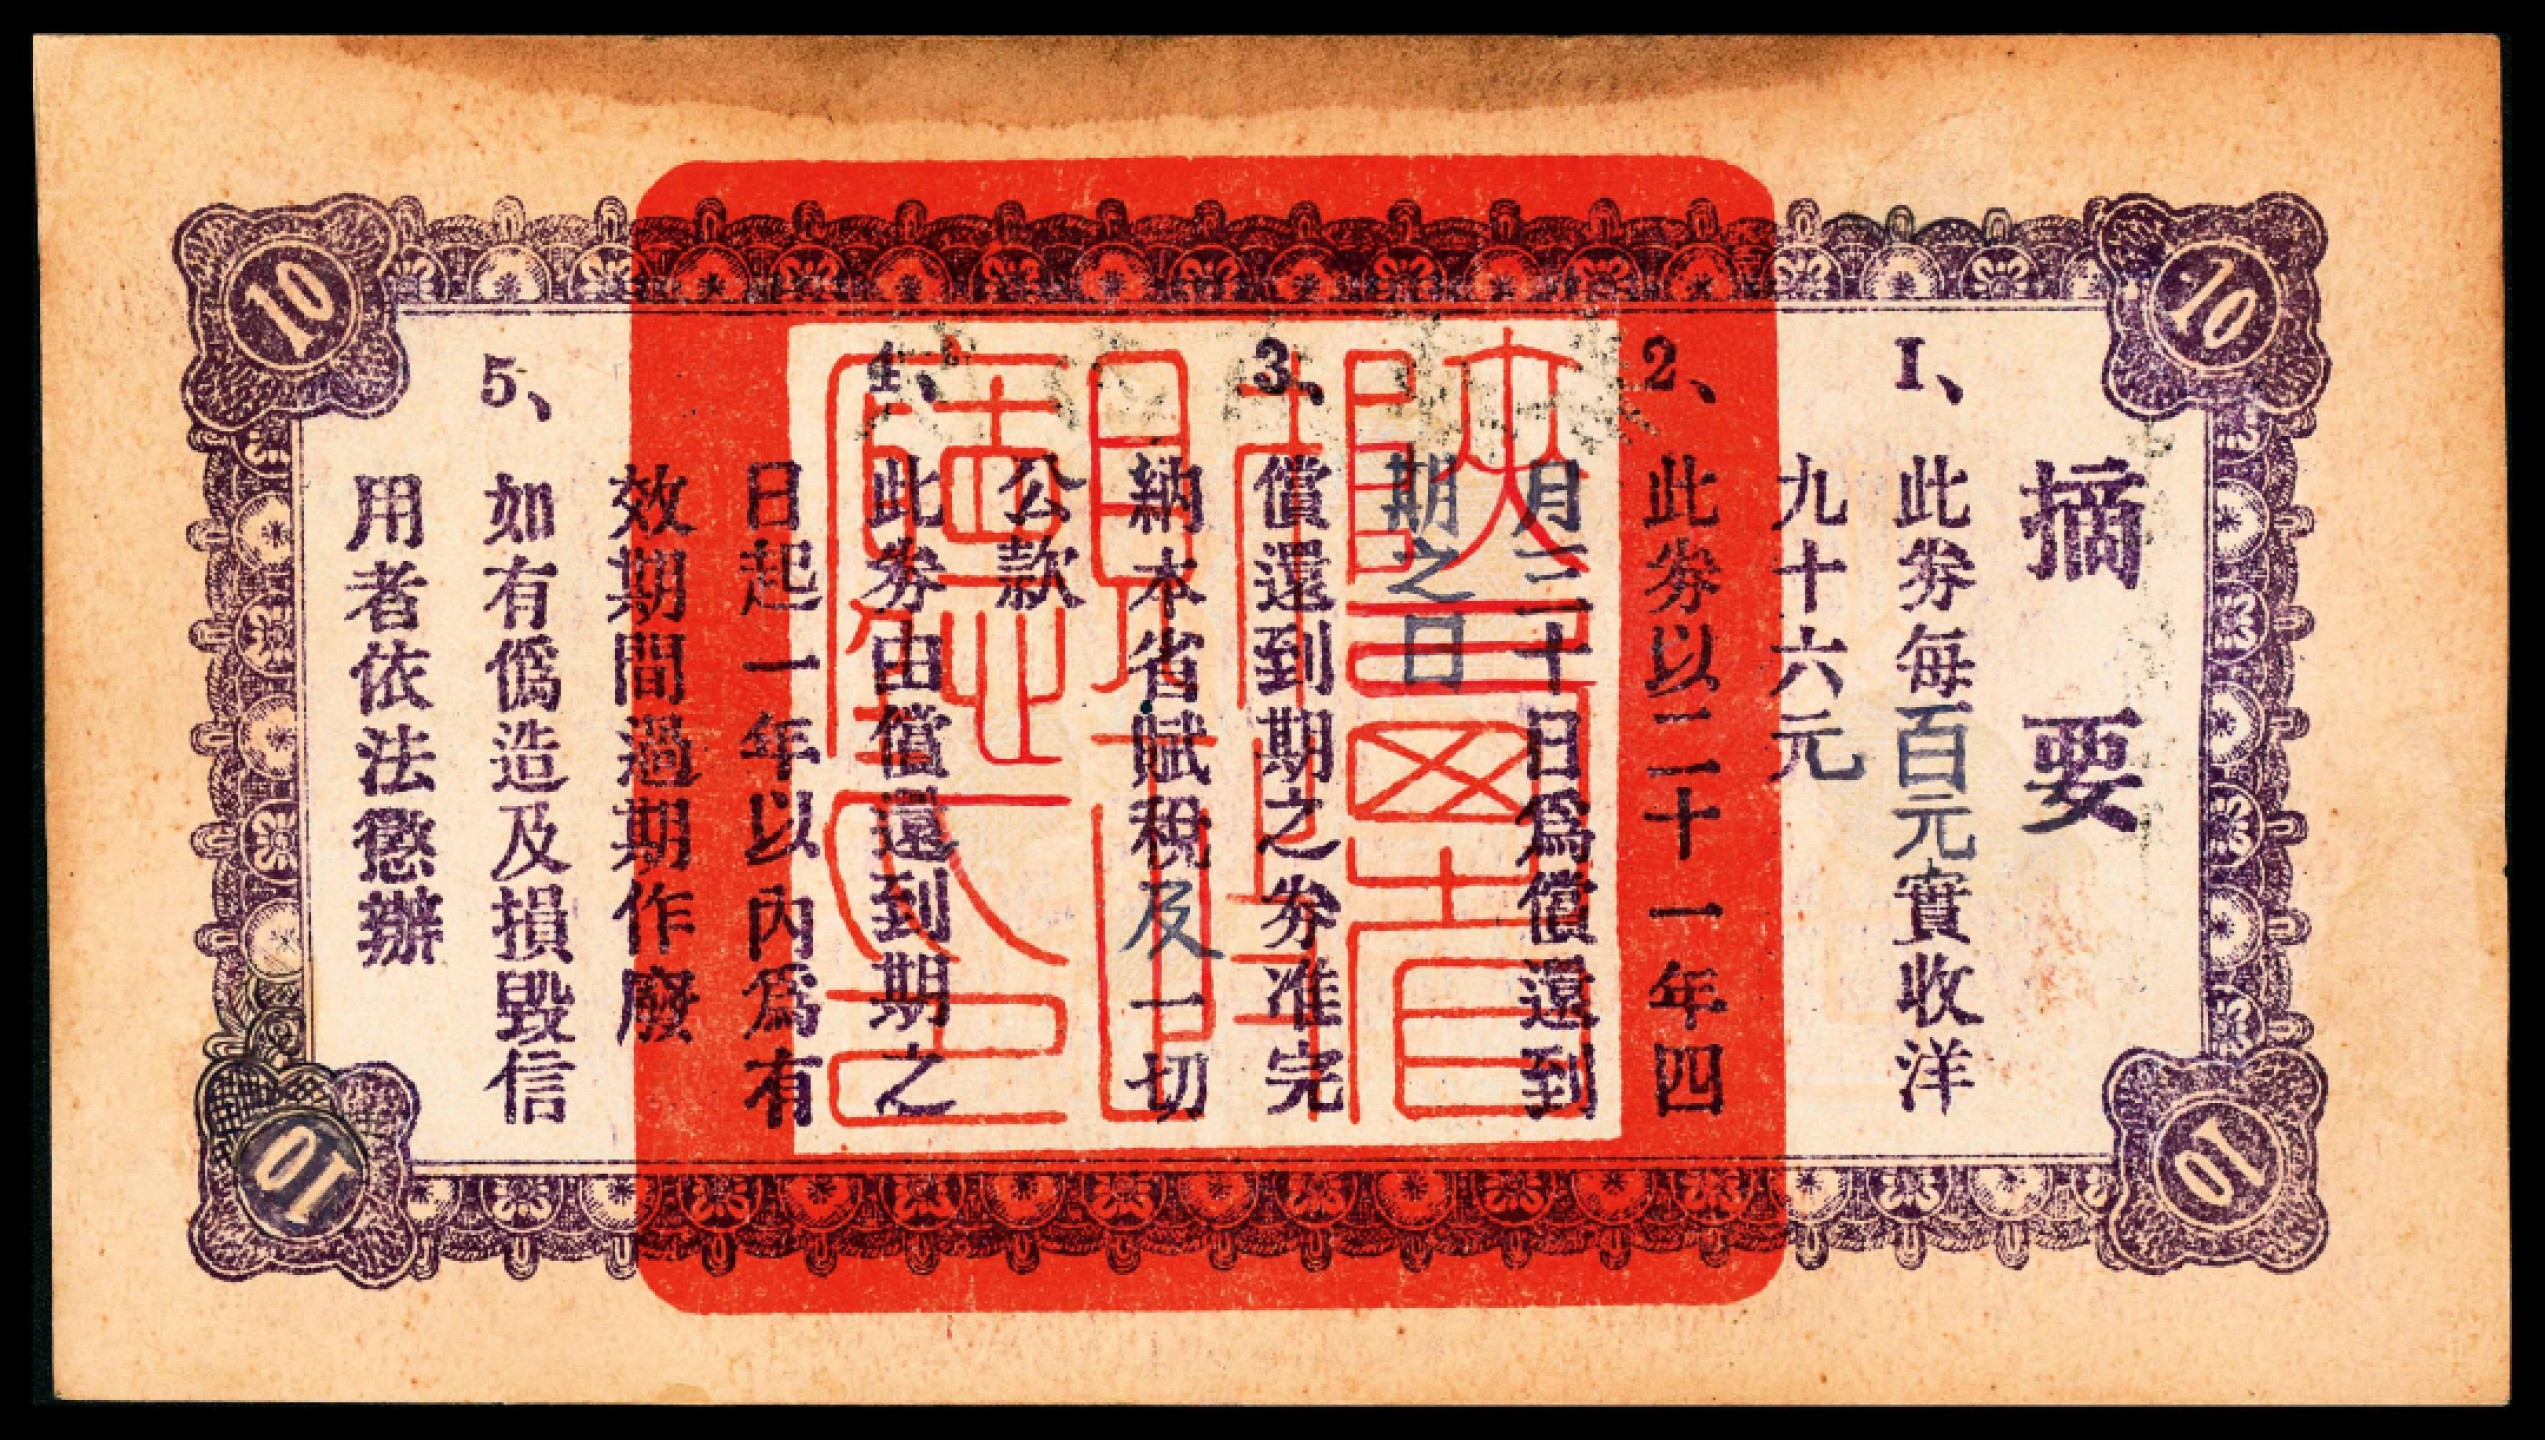 10
10
摘要
1、此劵每百元實收洋
九十六元
2、此劵以二十一年四
月三十日爲償還到
期之日
3、償還到期之劵准完
納本省賦稅及一切
公款
4、此劵由償還到期之
日起一年以內爲有
效期間過期作廢
5、如有僞造及損毀信
用者依法懲辦
10
10